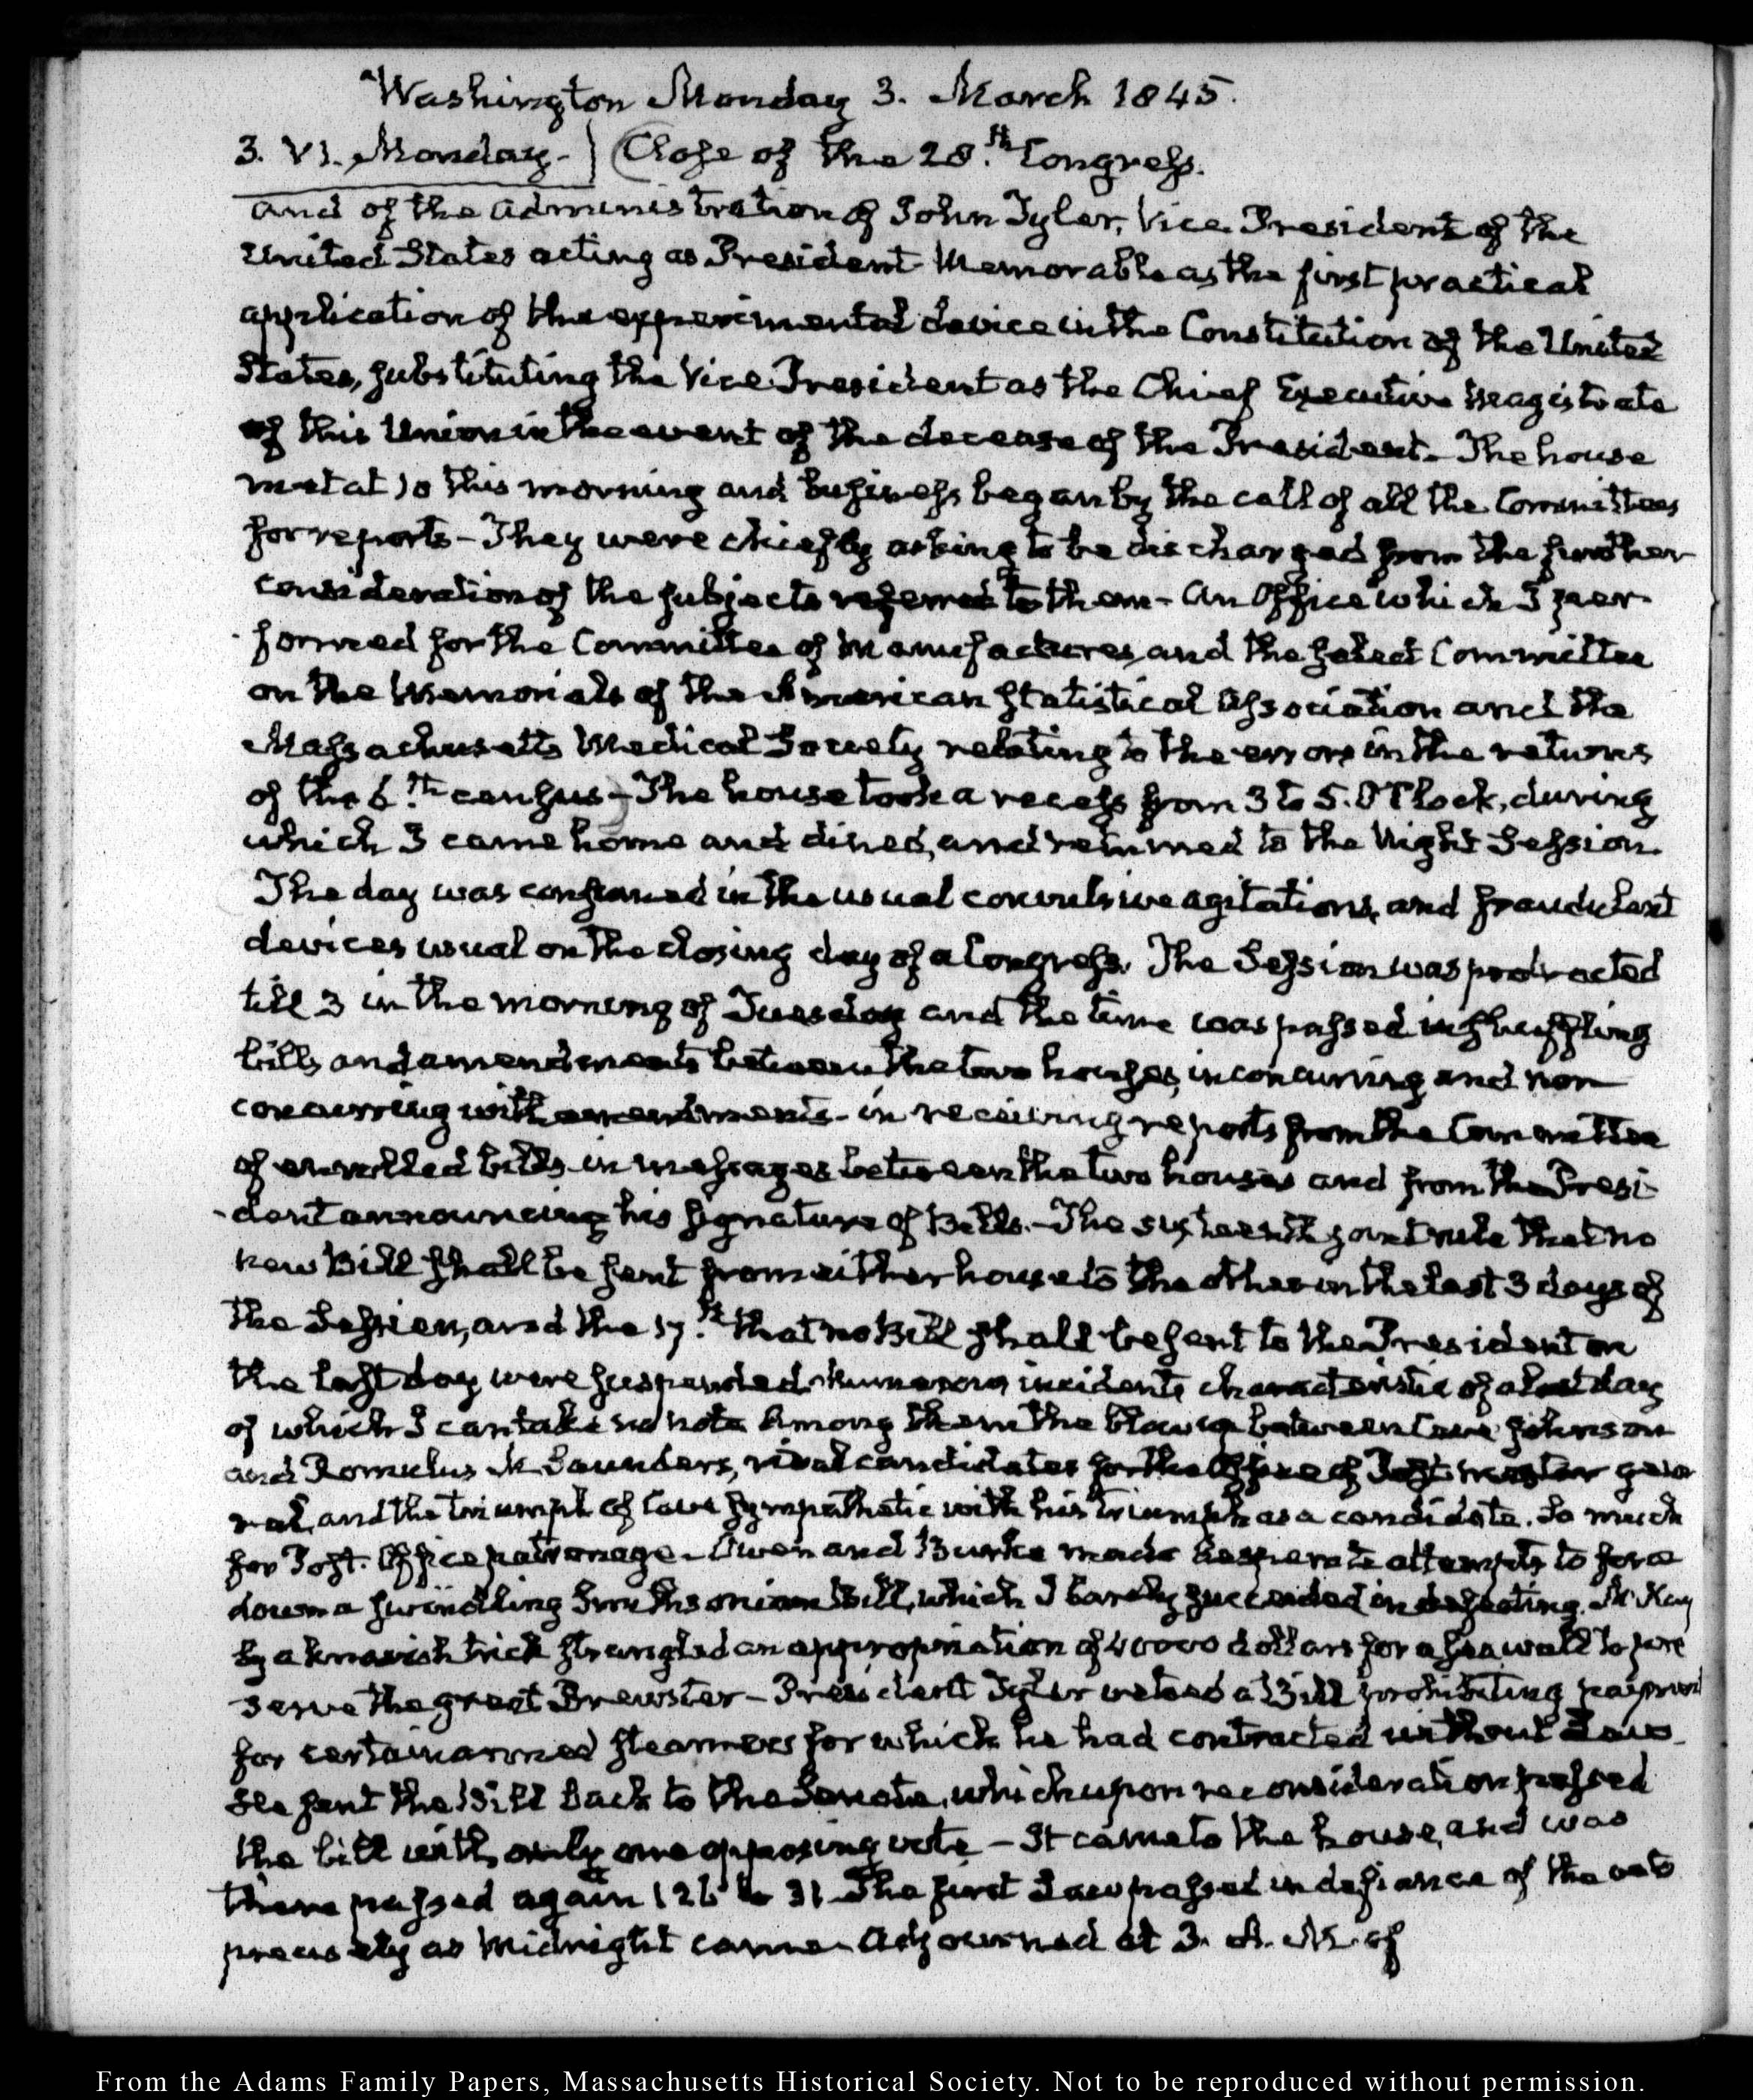 Washington Monday 3. March 1845.
3. VI. Monday. Close of the 28.th Congress.
and of the administration of John Tyler, Vice President of the
United States acting as President. Memorable as the first practical
application of the experimental device in the Constitution of the United
States, substituting the Vice President as the Chief Executive Magistrate
of this Union in the event of the decease of the President. The house
met at 10 this morning and business began by the call of all the Committees
for reports - They were chiefly asking to be discharged from the further
consideration of the subjects referred to them - an Office which I per-
formed for the Committee of Manufactures, and the select Committee
on the Memorials of the American Statistical Association and the
Massachusetts Medical Society relating to the errors in the returns
of the 6.th census - The house took a recess from 3 to 5. O'Clock, during
which I came home and dined, and returned to the Night Session.
The day was consumed in the usual convulsive agitations, and fraudulent
devices usual on the closing day of a Congress. The Session was protracted
till 3 in the morning of Tuesday and the time was passed in shuffling
bills and amendments between the two houses, in concurring and non
concurring with amendments - in receiving reports from the Committee
of enrolled bills - in messages between the two houses and from the Presi-
dent announcing his signature of Bills. - The sixteenth joint rule that no
new Bill shall be sent from either house to the other in the last 3 days of
the Session, and the 17.th that no Bill shall be sent to the President on
the last day were suspended. Numerous incidents characteristic of a last day
of which I can take no note Among them the between Cave Johnson
and Romulus M. Saunders, rival candidates for the Office of Post master gene
ral, and the triumph of Cave sympathetic with his triumph as a candidate. So much
for Post. Office patronage - Owen and Burke made desperate attempts to force
down a swindling Smithsonian Bill, which I barely succeeded in defeating. McKay
by a knavish trick strangled an appropriation of 40000 dollars for a sea wall to pre
serve the great Brewster - President Tyler vetoed a Bill prohibiting payment
for certain armed steamers for which he had contracted without Law.
He sent the Bill back to the Senate, which upon reconsideration passed
the bill with only one opposing vote - It came to the house, and was
there passed again 126 to 31 The first Law passed in defiance of the veto
precisely as Midnight came. Adjourned at 3. A. M. of
From the Adams Family Papers, Massachusetts Historical Society. Not to be reproduced without permission.